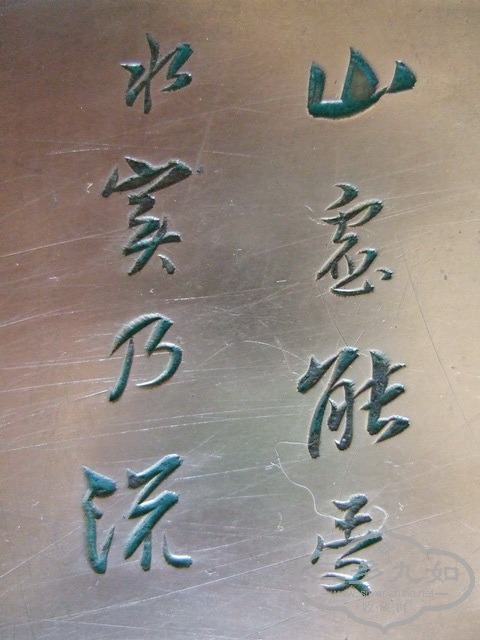 山虛能受
水實乃流
九如